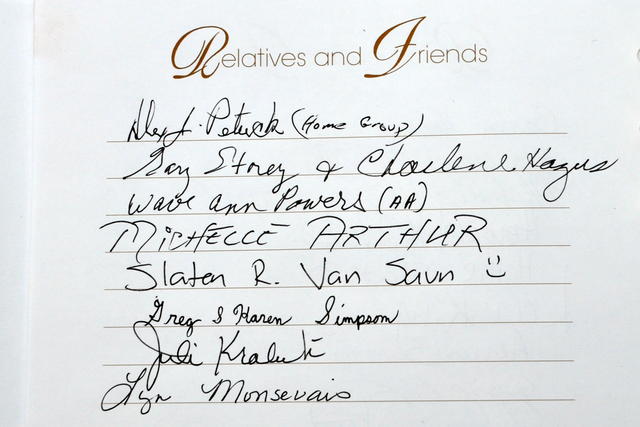 Relatives and Friends
Alex J. Petrick (Home Group)
Gary Storey & Charlene Hagus
Wave Ann Powers (AA)
MICHELLE ARTHUR
Slaten R. Van Saun
Greg & Karen Simpson
Juli
Lyn Monsevais